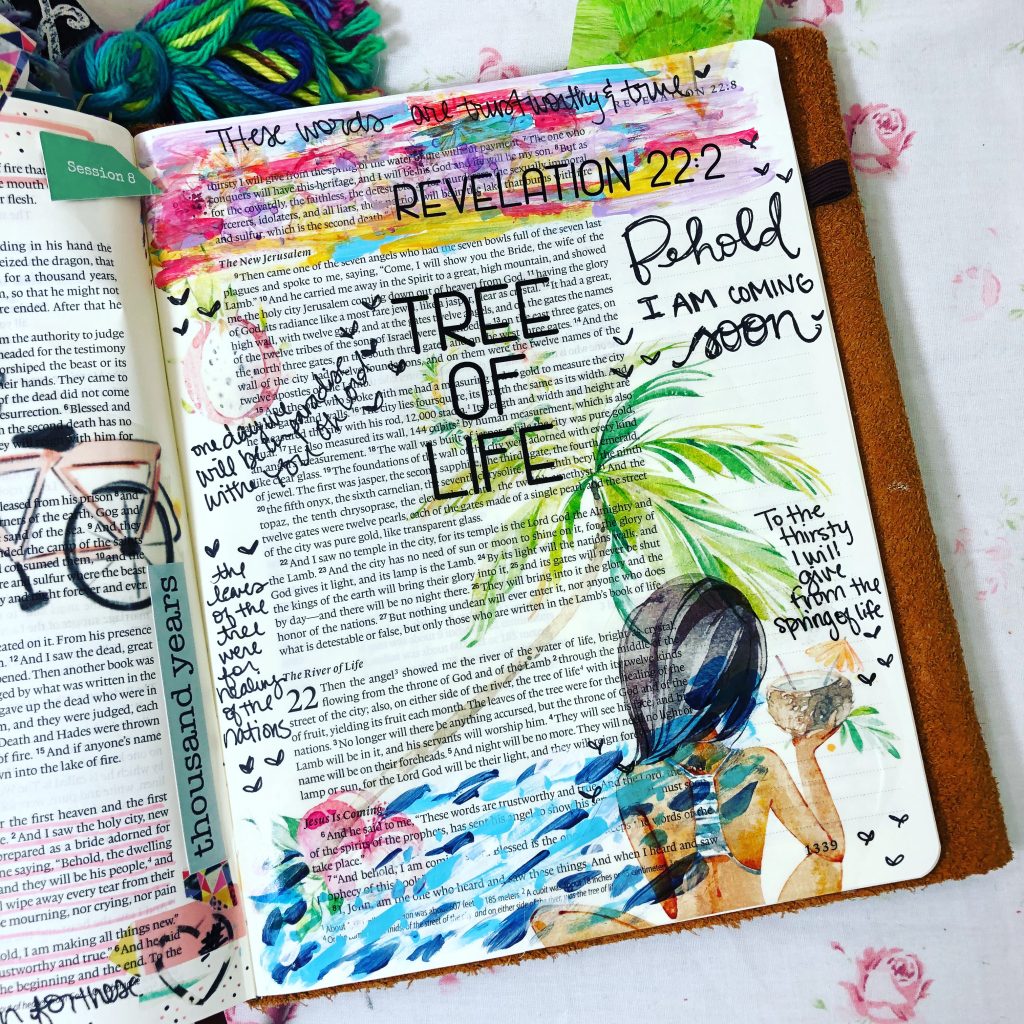 These words are trustworthy & true
REVELATION 22:8
Session 8
thirsty I will give from the spring of the water of life without payment. 7 The one who
conquers will have this heritage, and I will be his God and he will be my son. 8 But as
for the cowardly, the faithless, the detestable,
sorcerers, idolaters, and all liars, their portion will be in the lake that burns with fire
and sulfur, which is the second death.
REVELATION 22:2
Behold
I AM COMING
soon
The New Jerusalem
9 Then came one of the seven angels who had the seven bowls full of the seven last
plagues and spoke to me, saying, "Come, I will show you the Bride, the wife of the
Lamb." 10 And he carried me away in the Spirit to a great, high mountain, and showed
me the holy city Jerusalem coming down out of heaven from God, 11 having the glory
of God, its radiance like a most rare jewel, like a jasper, clear as crystal. 12 It had a great,
high wall, with twelve gates, and at the gates twelve angels, and on the gates the names
of the twelve tribes of the sons of Israel were inscribed— 13 on the east three gates, on
the north three gates, on the south three gates, and on the west three gates. 14 And the
wall of the city had twelve foundations, and on them were the twelve names of the
twelve apostles of the Lamb.
TREE
OF
LIFE
one day we
will be in paradise
with
15 And the one who spoke with me had a measuring rod of gold to measure the city
and its gates and walls. 16 The city lies foursquare, its length the same as its width. And
he measured the city with his rod, 12,000 stadia. Its length and width and height are
equal. 17 He also measured its wall, 144 cubits by human measurement, which is also
an angel's measurement. 18 The wall was built of jasper, while the city was pure gold,
like clear glass. 19 The foundations of the wall of the city were adorned with every kind
of jewel. The first was jasper, the second sapphire, the third agate, the fourth emerald,
20 the fifth onyx, the sixth carnelian, the seventh chrysolite, the eighth beryl, the ninth
topaz, the tenth chrysoprase, the eleventh jacinth, the twelfth amethyst. 21 And the
twelve gates were twelve pearls, each of the gates made of a single pearl, and the street
of the city was pure gold, like transparent glass.
22 And I saw no temple in the city, for its temple is the Lord God the Almighty and
the Lamb. 23 And the city has no need of sun or moon to shine on it, for the glory of
God gives it light, and its lamp is the Lamb. 24 By its light will the nations walk, and
the kings of the earth will bring their glory into it, 25 and its gates will never be shut
by day—and there will be no night there. 26 They will bring into it the glory and the
honor of the nations. 27 But nothing unclean will ever enter it, nor anyone who does
what is detestable or false, but only those who are written in the Lamb's book of life.
To the
thirsty
I will
give
from the
spring of life
the
leaves
of the
tree
were
for
healing
of the
nations
The River of Life
22 Then the angel showed me the river of the water of life, bright as crystal,
flowing from the throne of God and of the Lamb 2 through the middle of the
street of the city; also, on either side of the river, the tree of life with its twelve kinds
of fruit, yielding its fruit each month. The leaves of the tree were for the healing of the
nations. 3 No longer will there be anything accursed, but the throne of God and of the
Lamb will be in it, and his servants will worship him. 4 They will see his face, and his
name will be on their foreheads. 5 And night will be no more. They will need no light of
lamp or sun, for the Lord God will be their light, and they will reign forever
Jesus Is Coming
6 And he said to me, "These words are trustworthy and true. And the Lord, the
of the spirits of the prophets, has sent his angel to show his
take place."
7 "And behold, I am coming Blessed is the one words of the
prophecy of this book."
8 I, John, am the one who heard and saw these things. And when I heard and saw
1339
of fire that
mouth
flesh.
ding in his hand the
seized the dragon, that
for a thousand years,
n, so that he might not
were ended. After that he
m the authority to judge
headed for the testimony
orshiped the beast or its
heir hands. They came to
of the dead did not come
resurrection. 6 Blessed and
leased from his prison 8 and
thousand years
cated on it. From his presence
n. 12 And I saw the dead, great
pened. Then another book was
ged by what was written in the
gave up the dead who were in
m, and they were judged, each
Death and Hades were thrown
of fire. 15 And if anyone's name
wn into the lake of fire.
or the first heaven and the first
e. 2 And I saw the holy city, new
prepared as a bride adorned for
ne saying, "Behold, the dwelling
and they will be his people, and
l wipe away every tear from their
e mourning, nor crying, nor pain
old, I am making all things new."
ustworthy and true." 6 And he said
the beginning and the end. To the
for these